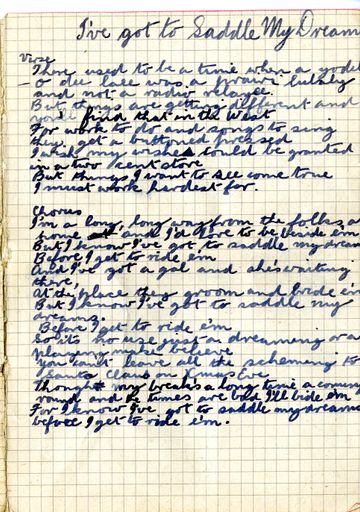 I've got to Saddle My Dream
Verse
There used to be a time when a yodel
o dee lace was a prairie lulaby
and not a radio relayee.
But things are getting different and
you'll find that in the West
For work to do and songs to sing
they get a buttoned pressed
I wish my wishes could be granted
in a two cent store
But things I want to see come true
I must work hardest for.
Chorus
I'm a long, long way from the folks a
home and I'd love to be beside em
But I know I've got to saddle my dream
Before I get to ride em
And I've got a gal and she's waiting
there,
At the place they groom and bride em
But I know I've got to saddle my
dreams.
Before I get to ride em
So its no use just a dreaming or a
playing make believe
You can't leave all the scheming to
Santa Claus on Xmas Eve
Thought my break's a long time a coming
round and the times are bad I'll bide em
For I know I've got to saddle my dreams
before I get to ride em.